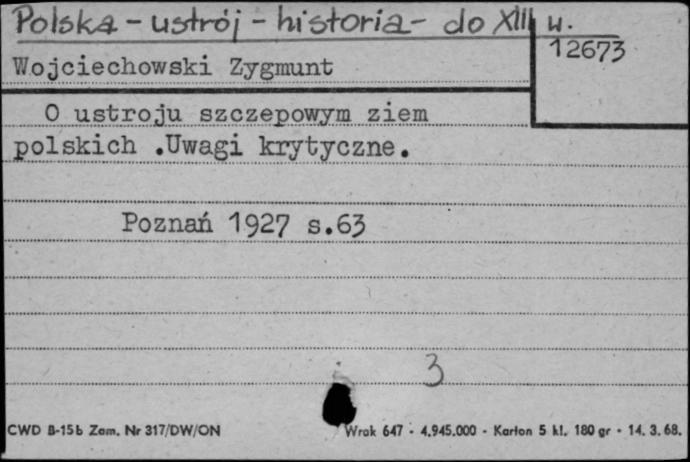 Polska - ustrój - historia - do XIII w.
12673
Wojciechowski Zygmunt
O ustroju szczepowym ziem
polskich .Uwagi krytyczne.
Poznań 1927 s.63
3
CWD B-15b Zam. Nr 317/DW/ON Wrak 647 - 4.945.000 - Karton 5 kl. 180 gr - 14. 3. 68.